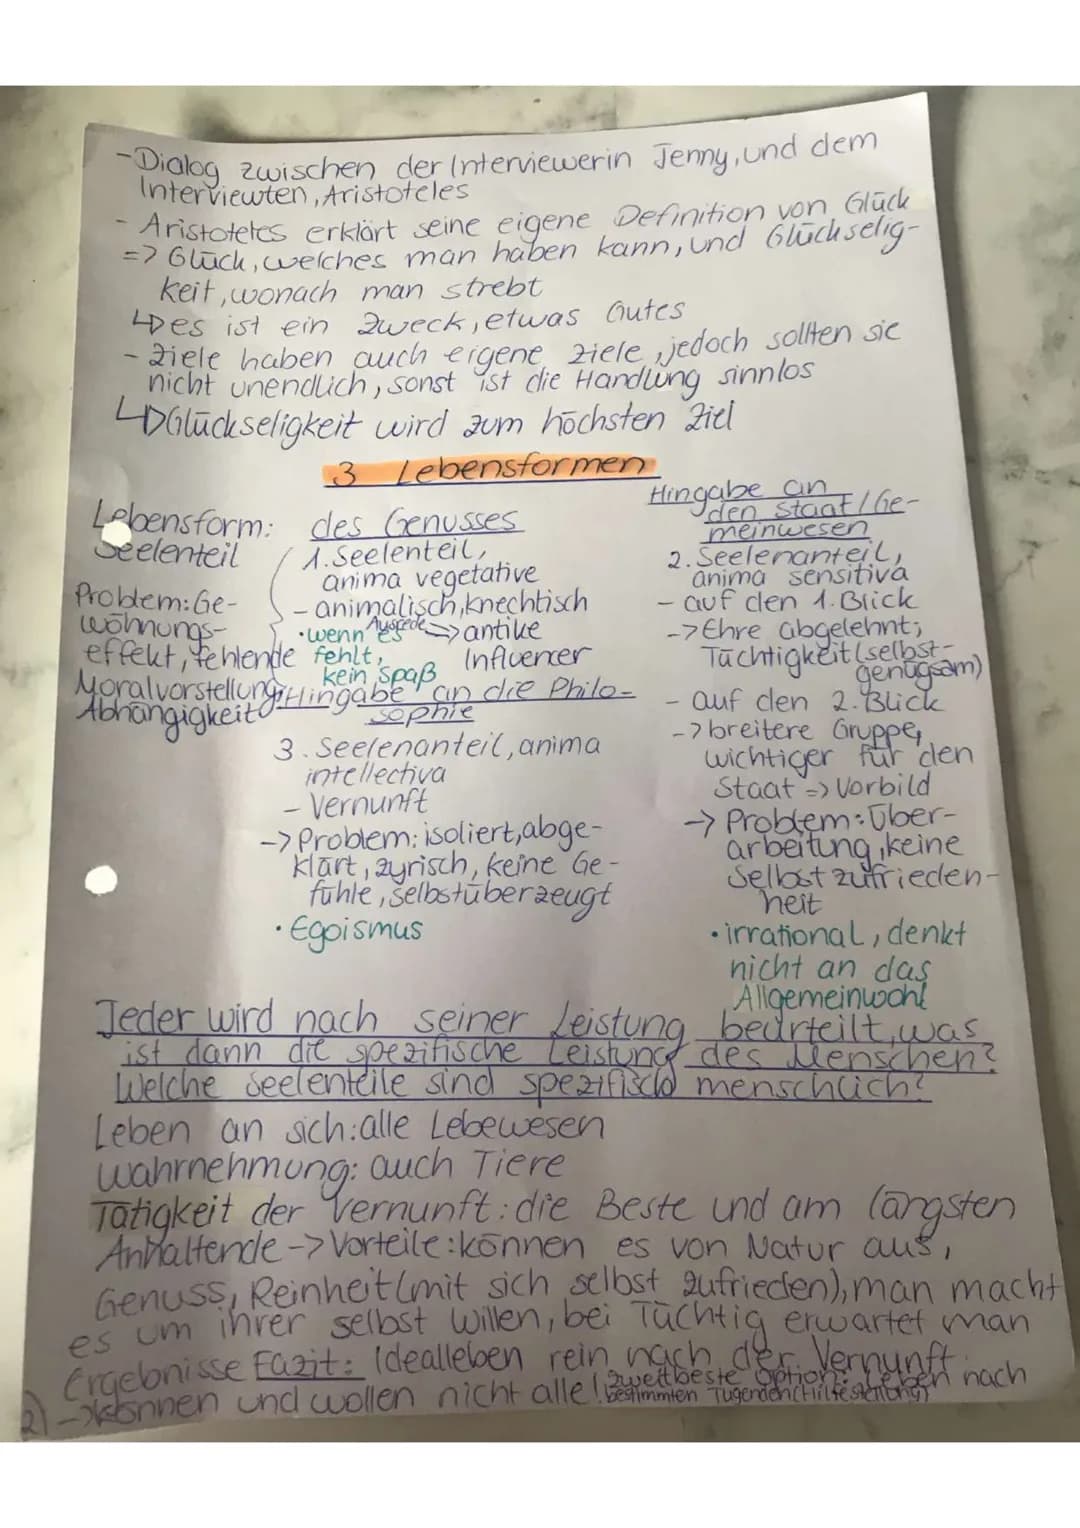 -Dialog zwischen der Interviewerin Jenny, und dem
Interviewten, Aristoteles
- Aristoteles erklärt seine eigene Definition von Glück
=> Glück, welches man haben kann, und Glückselig-
keit, wonach man strebt
↳ es ist ein Zweck, etwas Gutes
- Ziele haben auch eigene Ziele, jedoch sollten sie
nicht unendlich, sonst ist die Handlung sinnlos
↳ Glückseligkeit wird zum höchsten Ziel
3 Lebensformen
Lebensform:
Seelenteil
Problem: Ge-
wöhnungs-
effekt, fehlende
Moralvorstellung,
Abhängigkeit
des Genusses
1. Seelenteil,
anima vegetative
- animalisch, knechtisch
• wenn es Ausrede -> antike
fehlt, Influencer
kein Spaß
Hingabe an die Philo-
sophie
3. Seelenanteil, anima
intellectiva
- Vernunft
-> Problem: isoliert, abge-
klärt, zyrisch, keine Ge-
fühle, selbstüberzeugt
• Egoismus
Hingabe an
den Staat / Ge-
meinwesen
2. Seelenanteil,
anima sensitiva
- auf den 1. Blick
-> Ehre abgelehnt;
Tüchtigkeit (selbst-
genügsam)
- auf den 2. Blick
-> breitere Gruppe,
wichtiger für den
Staat => Vorbild
-> Problem: Über-
arbeitung, keine
Selbstzufrieden-
heit
• irrational, denkt
nicht an das
Allgemeinwohl
Jeder wird nach seiner Leistung beurteilt, was
ist dann die spezifische Leistung des Menschen?
Welche Seelenteile sind spezifisch menschlich?
Leben an sich: alle Lebewesen
Wahrnehmung: auch Tiere
Tätigkeit der Vernunft: die Beste und am längsten
Anhaltende -> Vorteile: können es von Natur aus,
Genuss, Reinheit (mit sich selbst zufrieden), man macht
es um ihrer selbst willen, bei Tüchtig erwartet man
Ergebnisse Fazit: Idealleben rein nach der Vernunft.
2) -> können und wollen nicht alle! zweitbeste Option: Leben nach
bestimmten Tugenden (Hilfestellung)